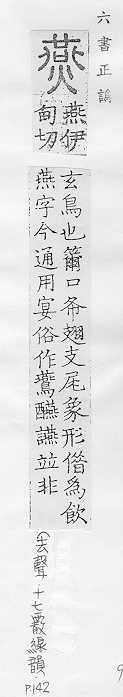 六書正譌
燕 燕伊
甸切
玄鳥也籋口布翅支尾象形借為飲
燕字今通用宴俗作鷰醼讌並非
(去聲.十七霰線韻.
P142
9